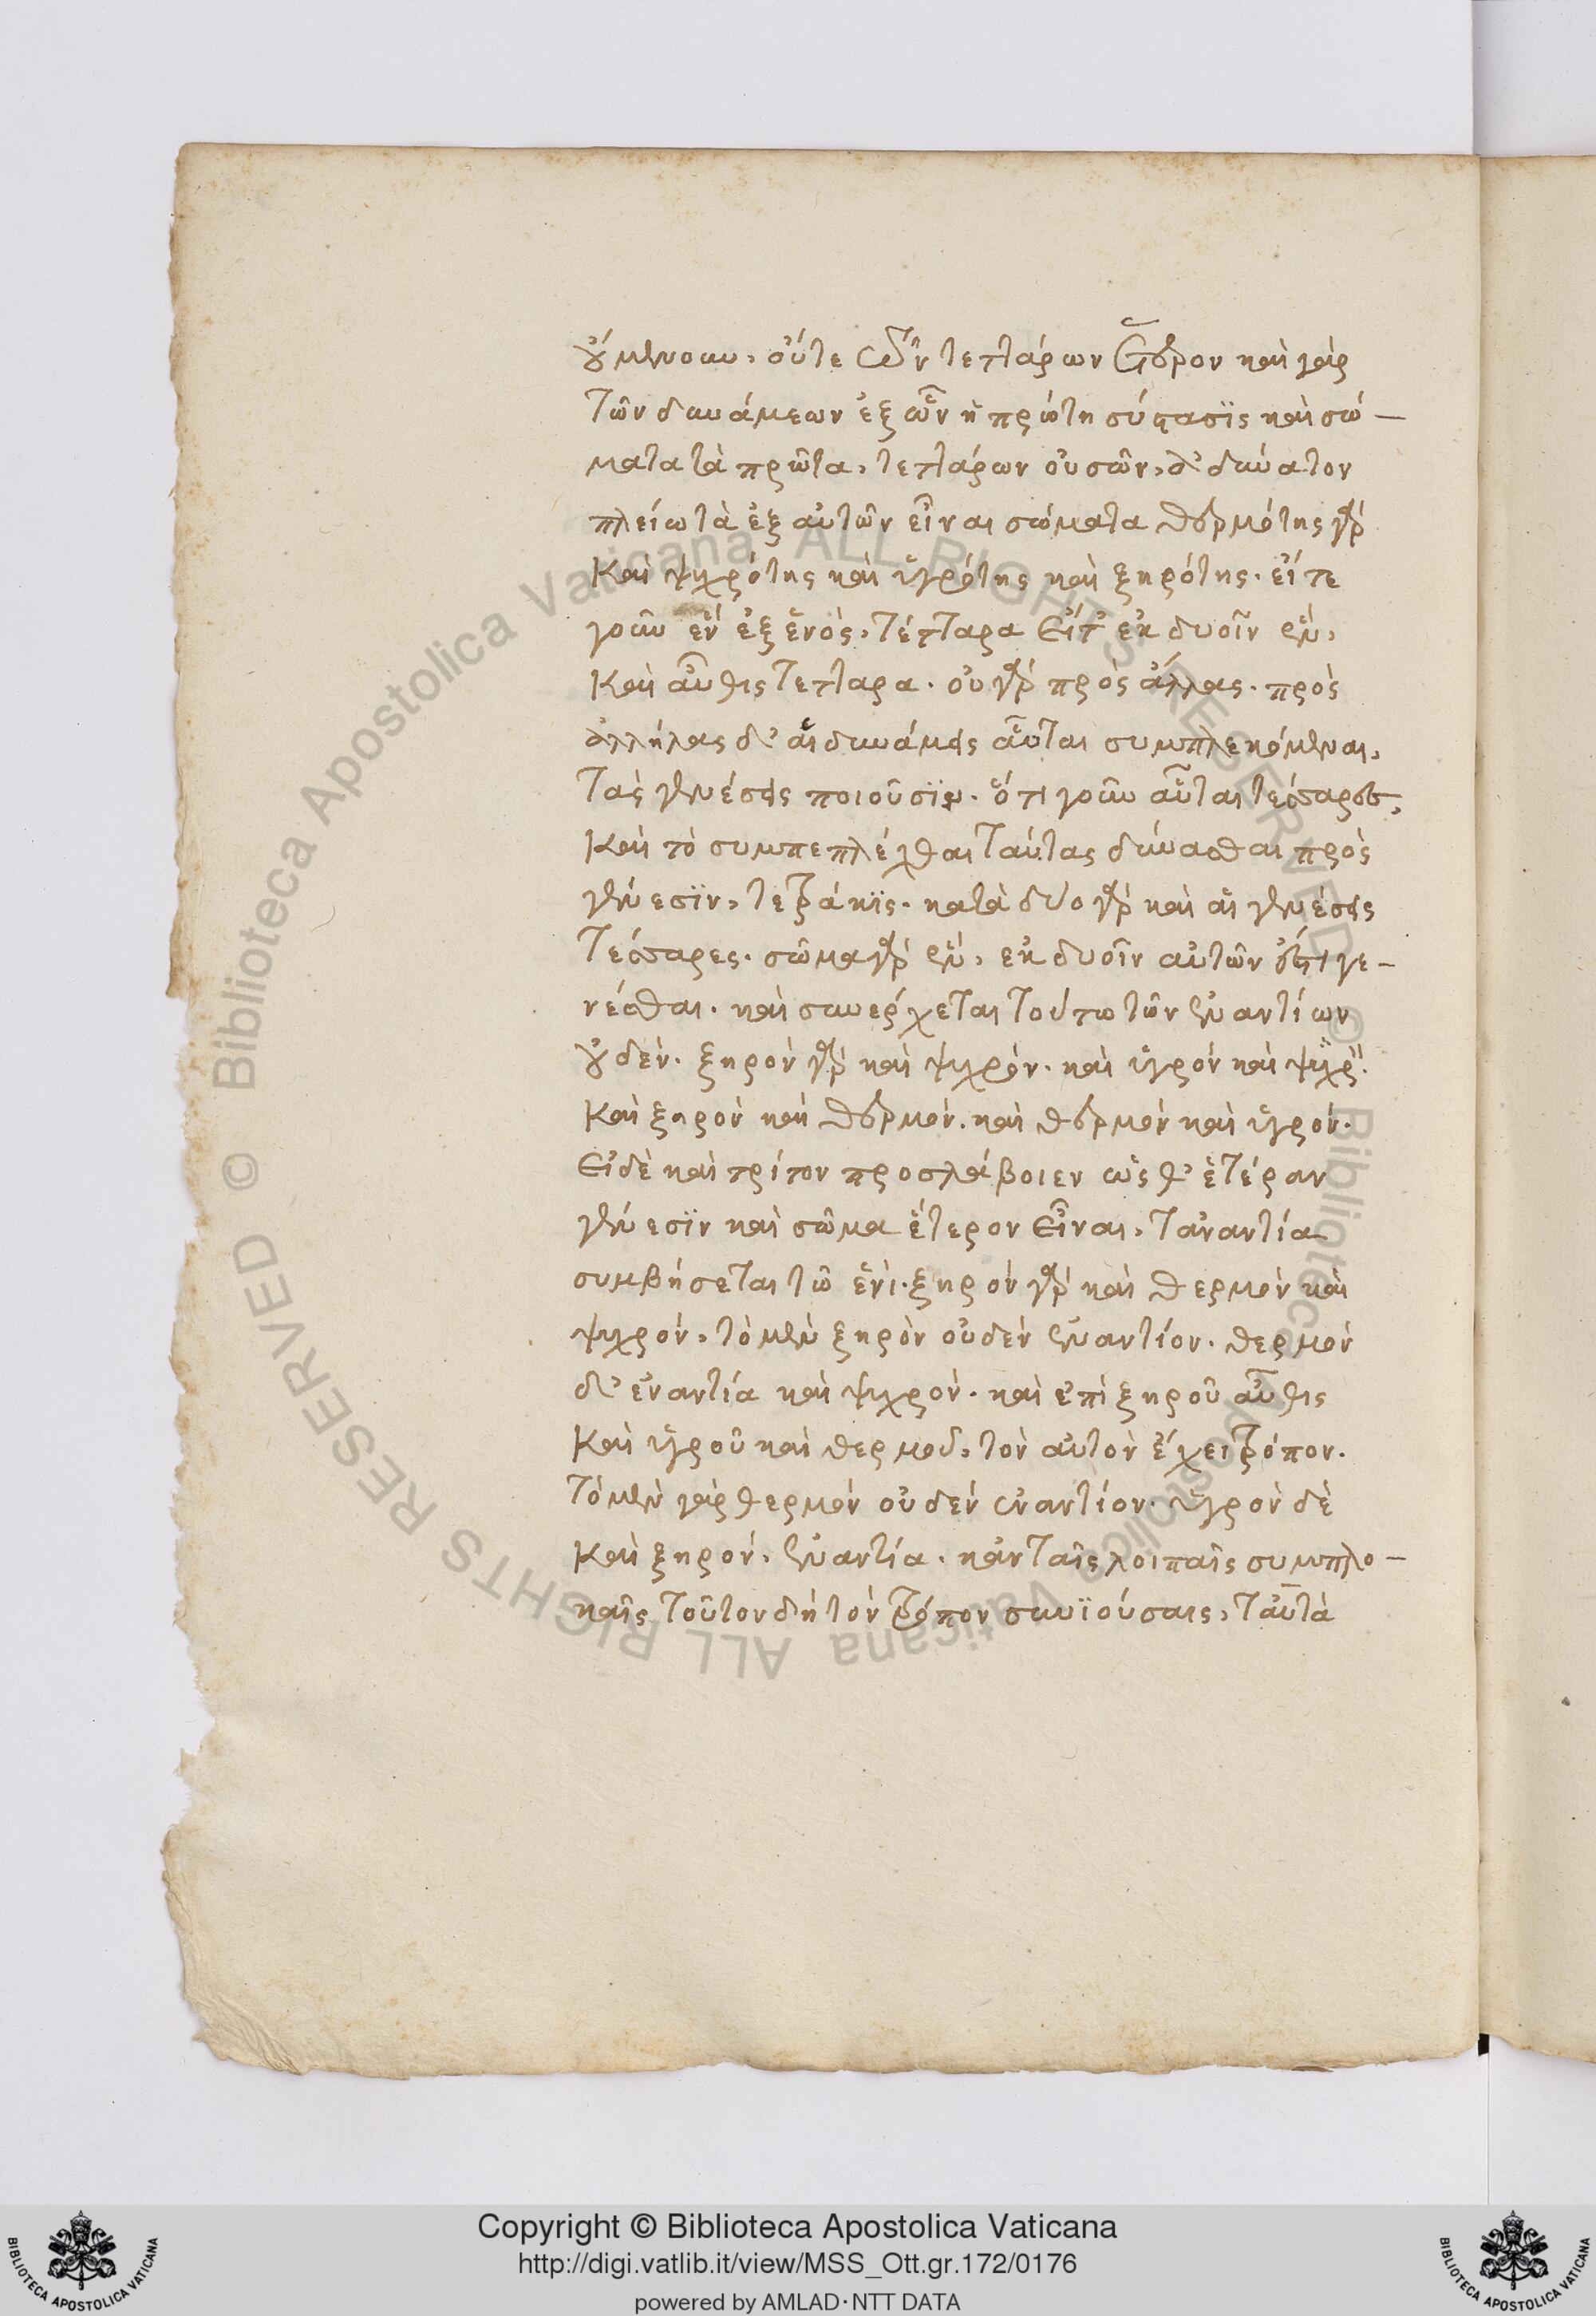 οὐμενουν, οὔτε τῶν τεττάρων ἕτερον καὶ γὰρ
τῶν δυνάμεων ἐξ ὧν ἡ πρώτη σύστασϊς καὶ σώ-
ματα τὰ πρῶτα, τεττάρων οὐσῶν, ἀδύνατον
πλείω τὰ ἐξ αὐτῶν εἶναι σώματα θερμότης γὰρ
Καὶ ψυχρότης καὶ ὑγρότης καὶ ξηρότης. εἴτε
γοῦν ἓν ἐξ ἑνὸς, τέτταρα εἴτ' ἐκ δυοῖν ἓν,
Καὶ αὖθις τετταρα. οὐ γὰρ πρὸς ἄλλας. πρὸς
ἀλλήλας δ' αἱ δυνάμεις αὗται συμπλεκόμεναι,
Τὰς γενέσεις ποιοῦσϊν. ὅτι γοῦν αὗται τέσσαρες,
Καὶ τὸ συμπεπλέχθαι ταύτας δύνασθαι πρὸς
γένεσϊν, τετράκϊς. κατὰ δύο γὰρ καὶ αἱ γενέσεις
Τέσσαρες. σῶμα γὰρ ἓν, ἐκ δυοῖν αὐτῶν ἐστι γε-
νέσθαι. καὶ συνέρχεται τούτω τῶν ἐναντίων
οὐδέν. ξηρὸν γὰρ καὶ ψυχρόν. καὶ ὑγρὸν καὶ ψυχρ.
Καὶ ξηρὸν καὶ θερμόν. καὶ θερμὸν καὶ ὑγρόν.
Εἰ δὲ καὶ τρίτον προσλάβοιεν ὥσθ' ἑτέραν
γένεσϊν καὶ σῶμα ἕτερον εἶναι, τἀναντία
συμβήσεται τῶ ἑνὶ. ξηρὸν γὰρ καὶ θερμὸν καὶ
ψυχρὸν, τὸ μὲν ξηρὸν οὐδὲν ἐναντίον. θερμὸν
δ' ἐναντία καὶ ψυχρόν. καὶ ἐπὶ ξηροῦ αὖθις
Καὶ ὑγροῦ καὶ θερμοῦ, τὸν αὐτὸν ἔχει τρόπον.
Τὸ μὲν γὰρ θερμὸν οὐδὲν ἐναντίον. ὑγρὸν δὲ
Καὶ ξηρὸν, ἐναντία. κἀν ταῖς λοιπαῖς συμπλο-
καῖς τοῦτον δὴ τὸν τρόπον συνϊούσαις, ταὐτὰ
© Biblioteca Apostolica Vaticana ALL RIGHTS RESERVED
© Biblioteca Apostolica Vaticana ALL RIGHTS RESERVED
Copyright © Biblioteca Apostolica Vaticana
http://digi.vatlib.it/view/MSS_Ott.gr.172/0176
powered by AMLAD·NTT DATA
BIBLIOTECA APOSTOLICA VATICANA
BIBLIOTECA APOSTOLICA VATICANA